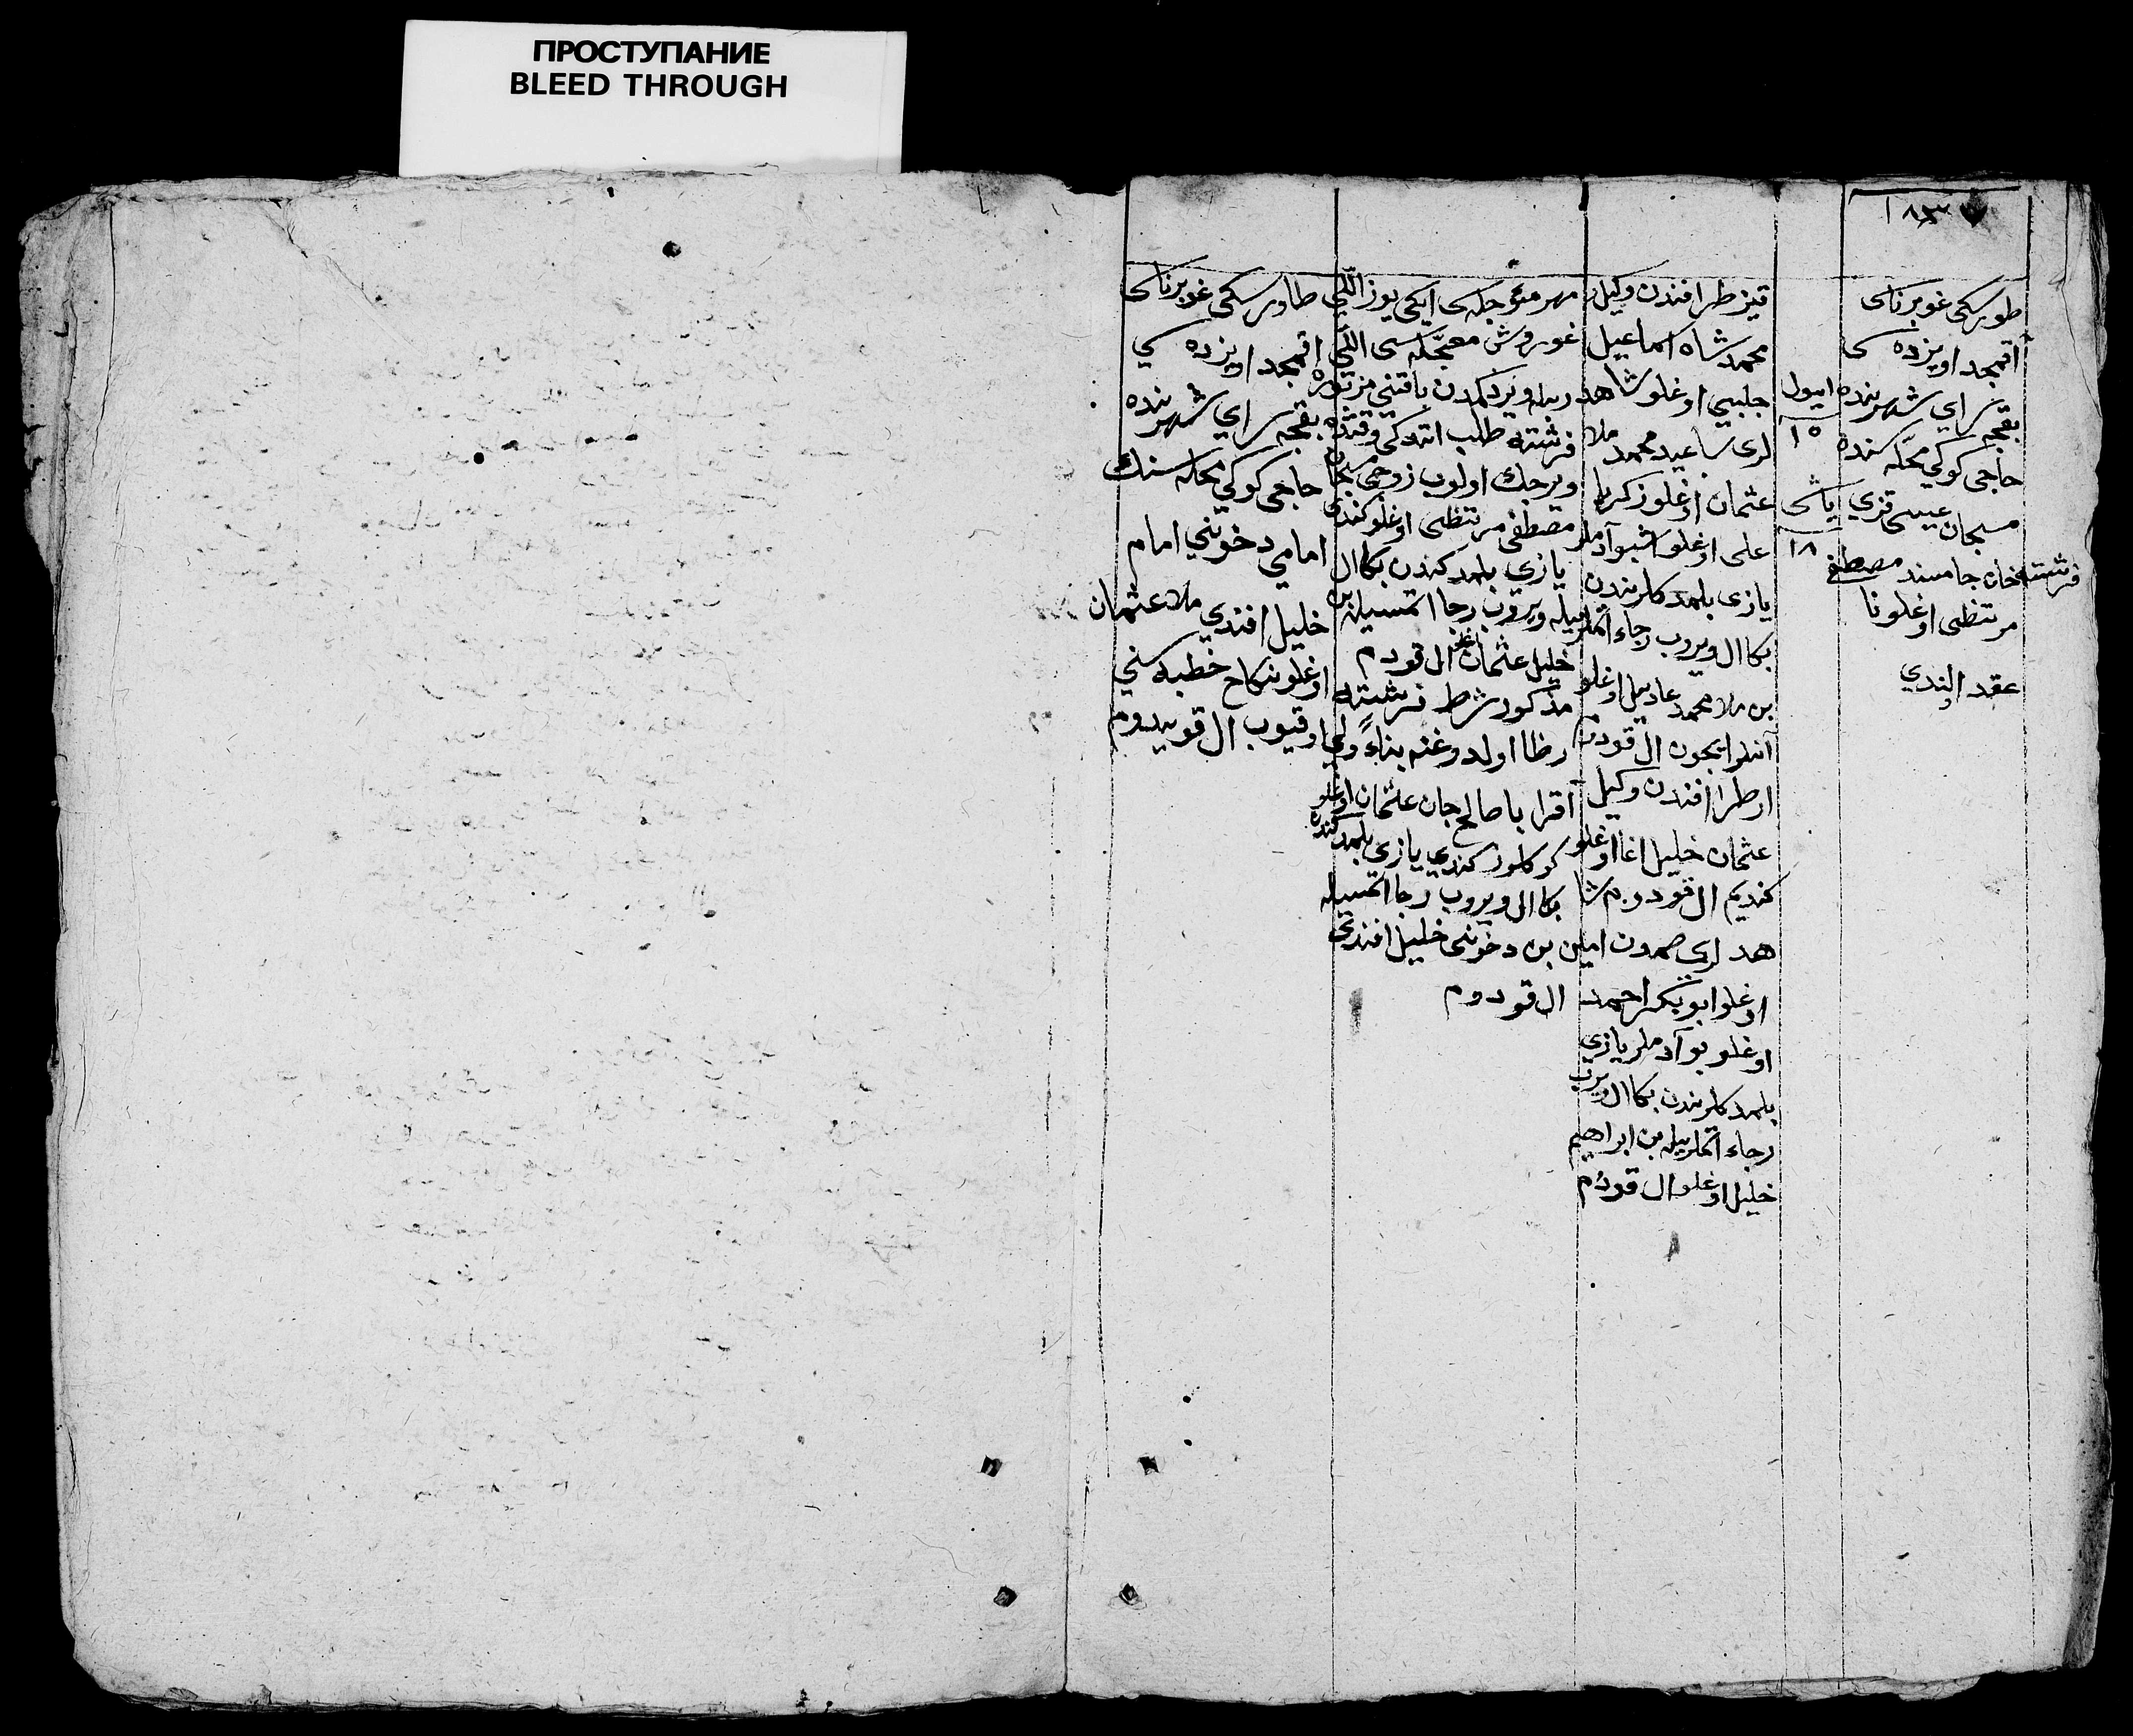 ПРОСТУПАНИЕ
BLEED THROUGH
١٨٣٧
طورسكى غوبرناى
آقمجد اويزده كى
بقچه سراي شهرينده
حاجى كوكي محله سنده
مسجان عيسى قزي
فرشته خان جامسند مصطفى
مرتظى اوغلونا
عقد اولندي
ايول
١٥
ياشى
١٨
قيز طرافندن وكيل
محمد شاه اسماعيل
جلبيى اوغلو شاهد
لرى سا عيد محمد ملا
عثمان اوغلو زكريا
على اوغلو شبو آدملر
يازى بلمد كلرندن
بكا ال ويروب رجاء اتملريله
بن ملا محمد عاديل اوغلو
آنلر ايچون ال قودم
ار طرافندن وكيل
عثمان خليل اغا اوغلو
كنديم ال قودوم شا
هد لرى صمدون امين
اوغلو ابو بكر احمد
اوغلو بو آدملر يازي
بلمد كلرندن بكا ال ويروب
رجاء اتملريله بن ابراهيم
خليل اوغلو ال قودم
مهر مؤجله كى ايكى يوز اللي
غوروش معجله سى اللي
فرشته طلب اتدكى وقتده
ويرجك اولوب زوجى مسجان
مصطفى مرتظى اوغلو كندى
يازى بلمد كندن بكا ال
ويروب رجا اتمسيله بن
خليل عثمان اوغلو ال قودم
مذكور شرط فرشته
رظا اولدوغنه بناءً ولي
آقرا باصالح جان عثمان اوغلو
كوكلور كندي يازي بلمد كنده
بكا ال ويروب رجا اتمسيله
بن دخونى خليل افندى
ال قودوم
طاورسكى غوبرناى
اقمجد اويزده كي
بقچه سراي شهرينده
حاجى كوكي محله سنك
امامي دخونني امام
خليل افندي ملا عثمان
اوغلو نكاح خطبه سني
اوقيوب ال قويدوم